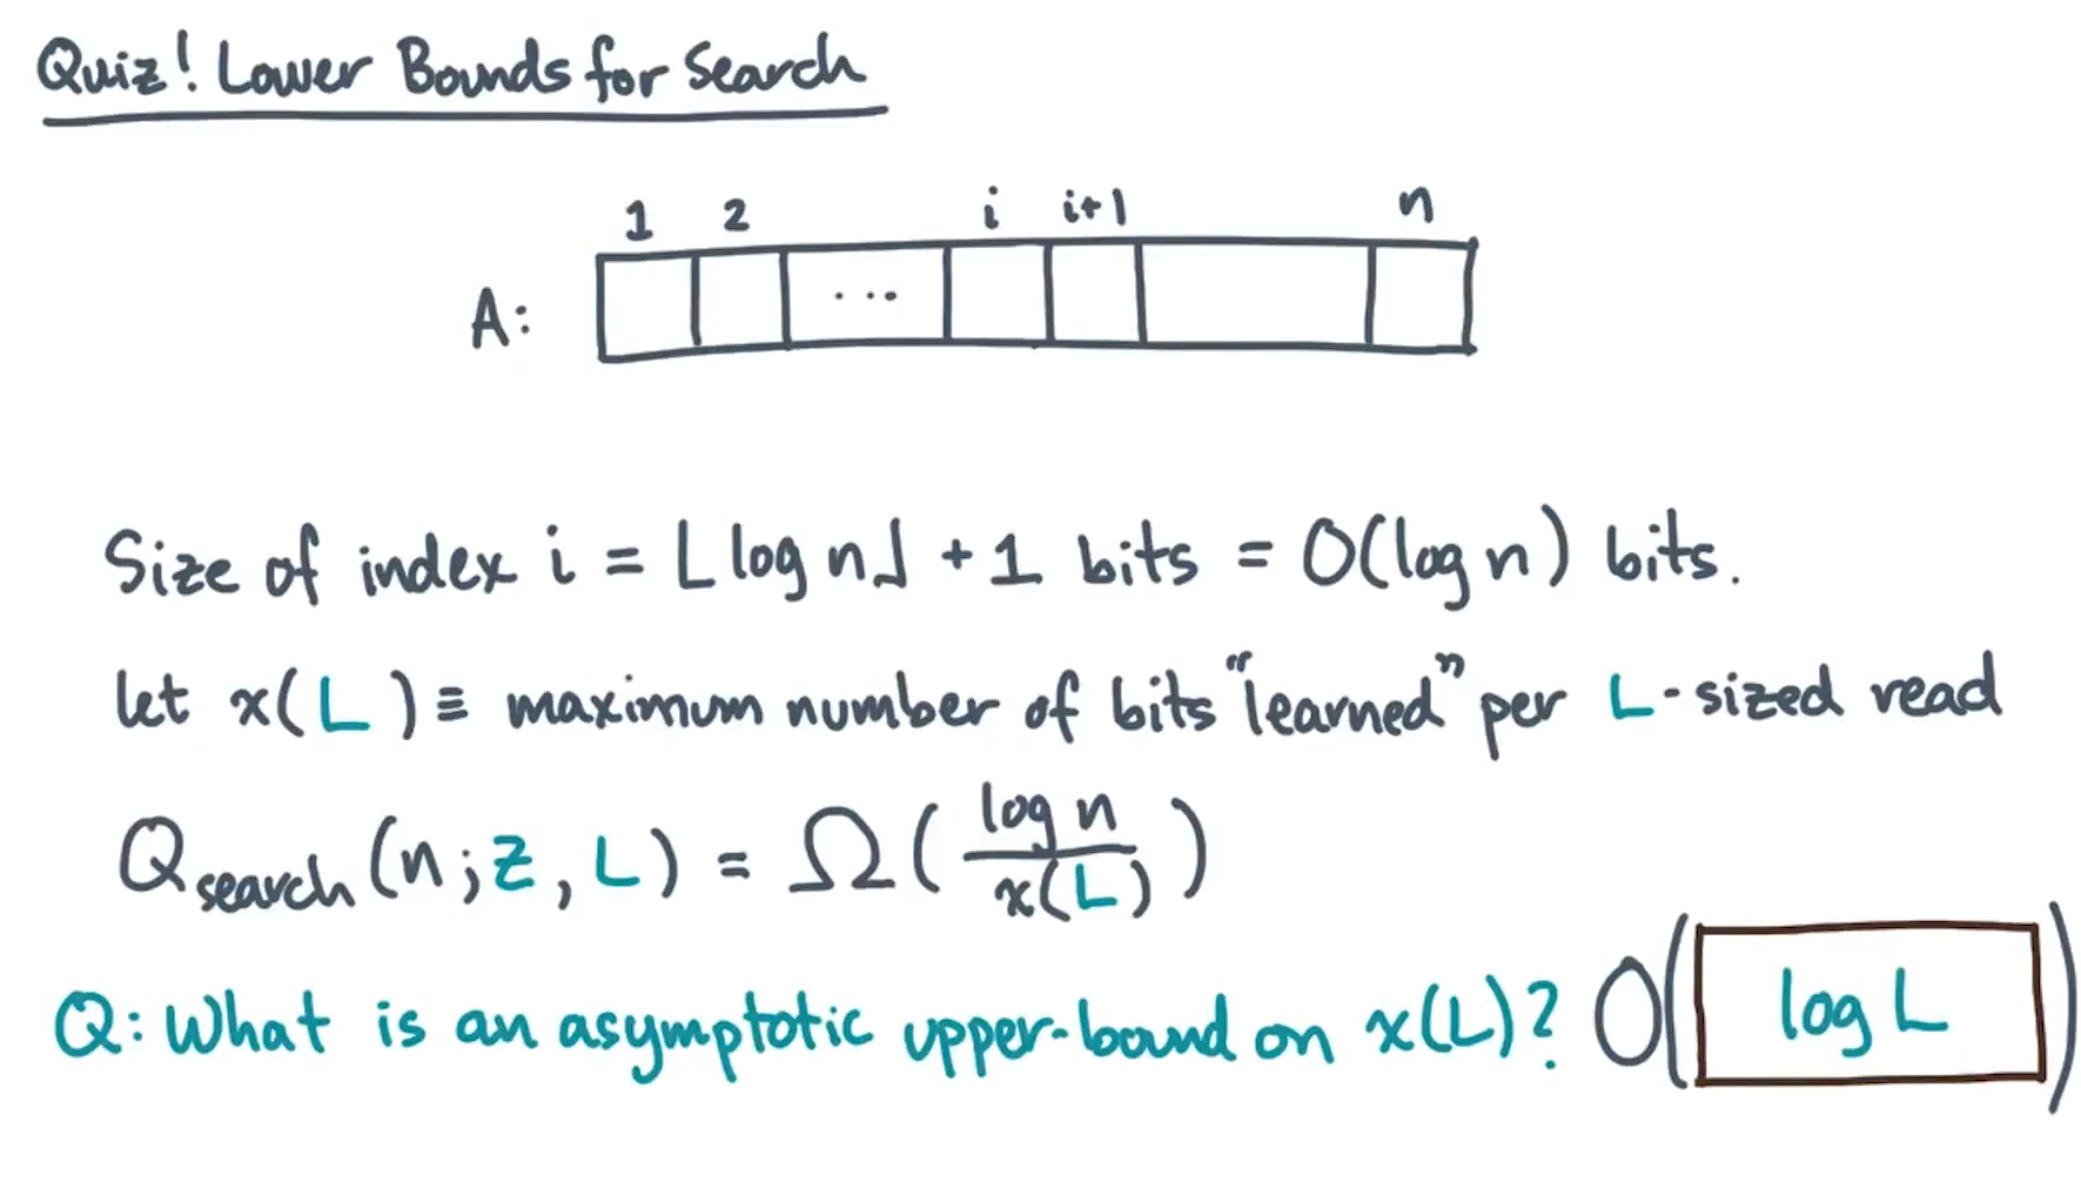 Quiz! Lower Bounds for Search
1 2 i i+1 n
A: ...
Size of index i = ⌊log n⌋ + 1 bits = O(log n) bits.
let x(L) ≡ maximum number of bits "learned" per L-sized read
Q search (n; Z, L) = Ω( log n / x(L) )
Q: What is an asymptotic upper-bound on x(L)? O( log L )